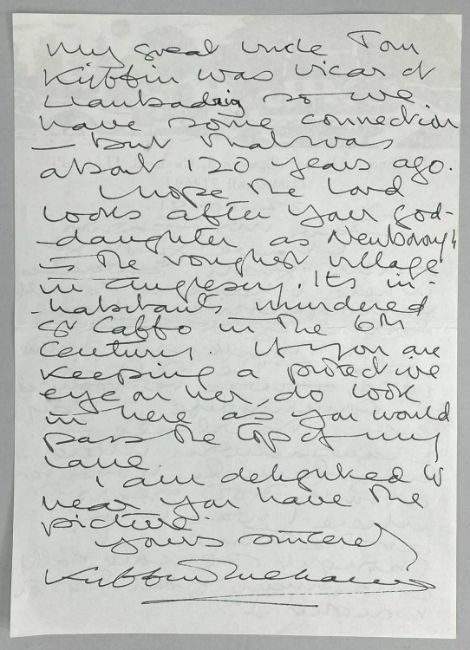 My great uncle Tom
Kyffin was vicar of
Llanbadrig so we
have some connection
– but that was
about 120 years ago.
I hope the Lord
looks after your god-
-daughter as Newborough
is the roughest village
in Anglesey. Its in-
-habitants murdered
St Caffo in the 6th
Century. If you are
keeping a protective
eye on her, do look
in here as you would
pass the top of my
lane.
I am delighted to
hear you have the
picture.
Yours sincerely
Kyffin Williams